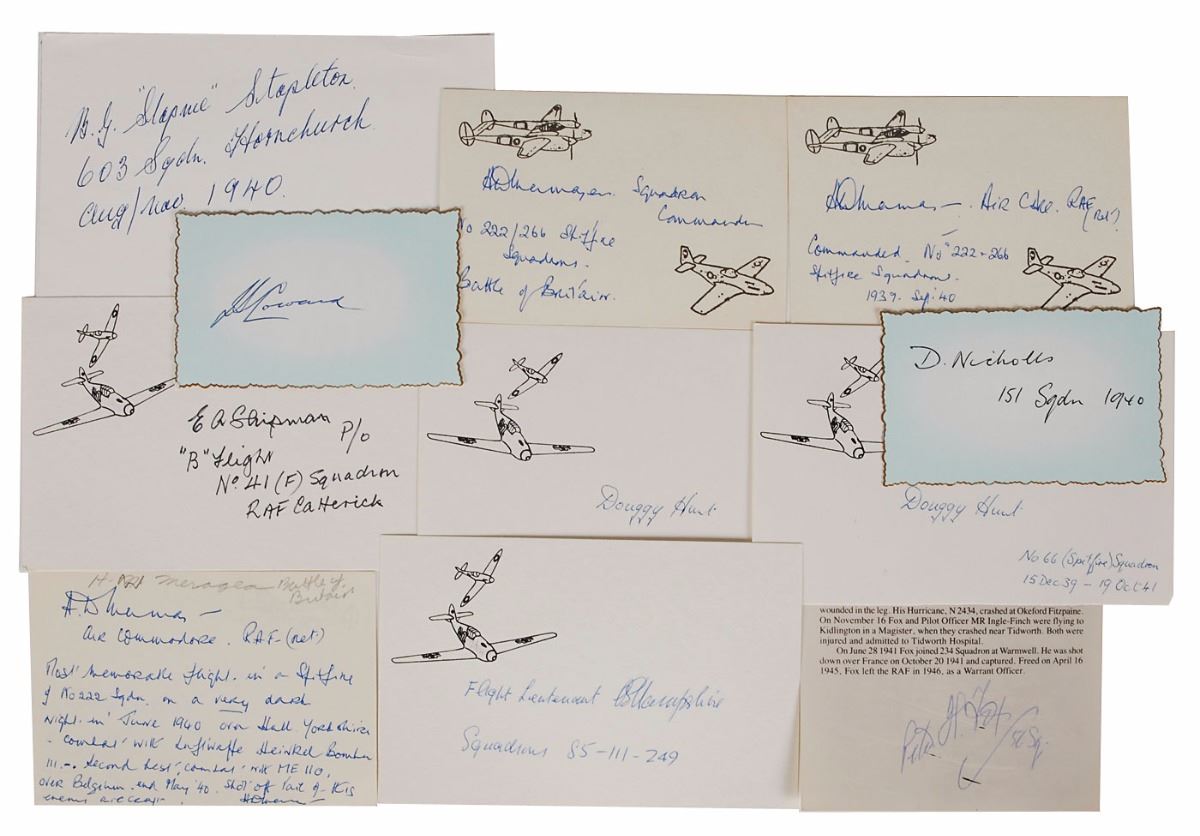 B. G. "Stapme" Stapleton.
603 Sqdn. Hornchurch
Aug/Nov. 1940.
Squadron
Commander
No 222/266 Spitfire
Squadrons.
Battle of Britain.
Air Cdre. RAF (ret)
Commanded No 222 - 266
Spitfire Squadrons.
1939. Sep: 40
Coward
E A Shipman
P/O
"B" Flight
No 41 (F) Squadron
RAF Catterick
Douggy Hunt
D. Nicholls
151 Sqdn 1940
Douggy Hunt
No 66 (Spitfire) Squadron
15 Dec 39 - 19 Oct 41
Battle of
Britain
Air Commodore. RAF (ret)
Most memorable flight. in a Spitfire
of No 222 Sqdn. on a very dark
night in June 1940 over Hull Yorkshire
- combat with Luftwaffe Heinkel Bomber
111 -. Second best, combat with ME 110,
over Belgium end May '40. Shot off tail of this
enemy aircraft.
Flight Lieutenant Hampshire
Squadrons 85-111-249
wounded in the leg. His Hurricane, N 2434, crashed at Okeford Fitzpaine.
On November 16 Fox and Pilot Officer MR Ingle-Finch were flying to
Kidlington in a Magister, when they crashed near Tidworth. Both were
injured and admitted to Tidworth Hospital.
On June 28 1941 Fox joined 234 Squadron at Warmwell. He was shot
down over France on October 20 1941 and captured. Freed on April 16
1945, Fox left the RAF in 1946, as a Warrant Officer.
Peter